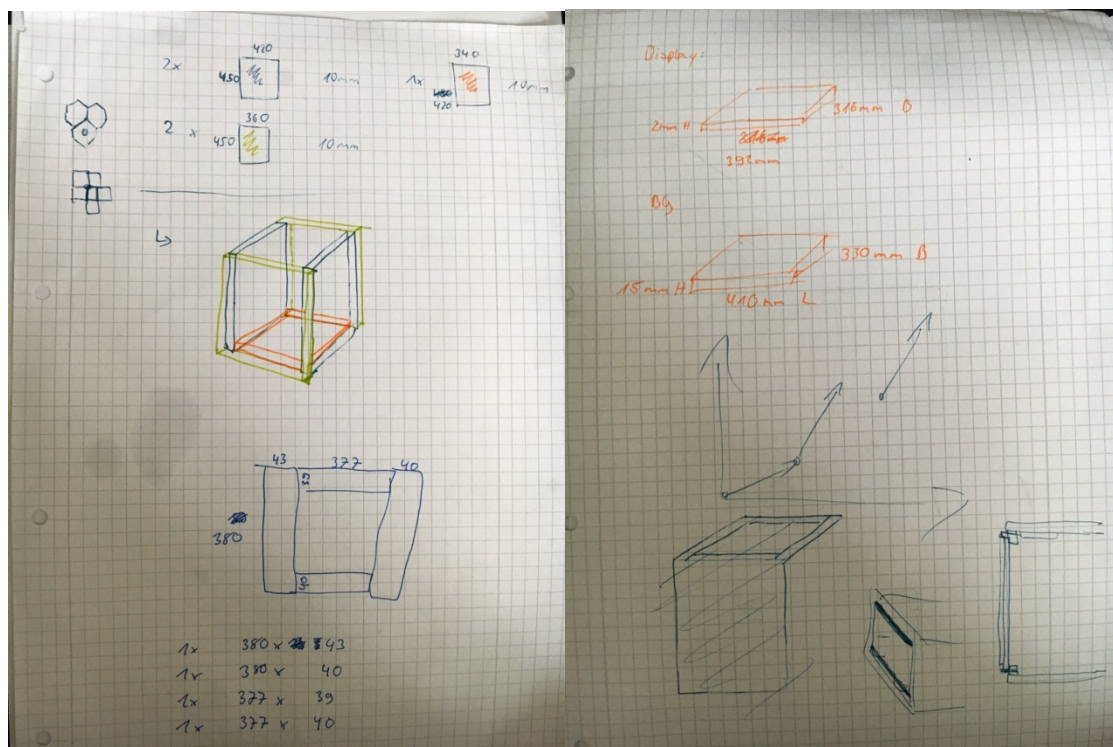 2x 420 450 10mm
1x 340 420 10mm
2 x 360 450 10mm
43 377 40
39
380
40
1x 380 x 43
1x 380 x 40
1x 377 x 39
1x 377 x 40
Display:
316mm B
2mm H
392mm
BG
330mm B
15mm H
410mm L